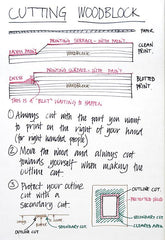 CUTTING WOODBLOCK
PAPER
PRINTING SURFACE - WITH PAINT
EXCESS PAINT
WOODBLOCK
CLEAN PRINT
PRINTING SURFACE - WITH PAINT
WOODBLOCK
BLOTTED PRINT
THIS IS A "BLOT" WAITING TO HAPPEN
① Always cut with the part you want
to print on the right of your hand
(for right handed people)
② Move the wood and always cut
towards yourself when making
the outline cut
③ Protect your outline
cut with a
secondary cut.
OUTLINE CUT
PROTECTED WOOD
SECONDARY CUT
CLEARED AREA
OUTLINE CUT
PRINT
SECONDARY CUT